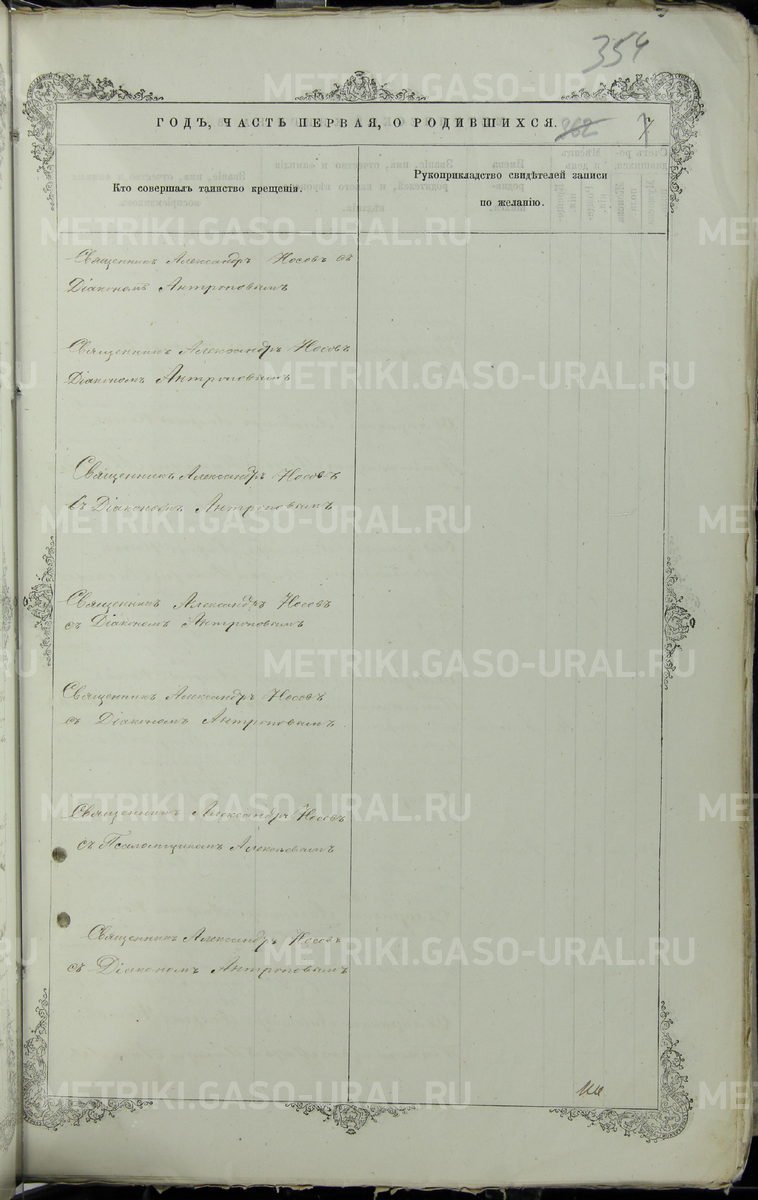 354
ГОДЪ, ЧАСТЬ ПЕРВАЯ, О РОДИВШИХСЯ. 262 7
Кто совершалъ таинство крещенія.
Рукоприкладство свидѣтелей записи
по желанію.
Священникъ Александръ Носовъ съ
Діакономъ Антроповымъ
Священникъ Александръ Носовъ
Діакономъ Антроповымъ
Священникъ Александръ Носовъ
съ Діакономъ Антроповымъ
Священникъ Александръ Носовъ
съ Діакономъ Антроповымъ
Священникъ Александръ Носовъ
съ Діакономъ Антроповымъ
Священникъ Александръ Носовъ
съ Псаломщикомъ
Священникъ Александръ Носовъ
съ Діакономъ Антроповымъ
METRIKI.GASO-URAL.RU